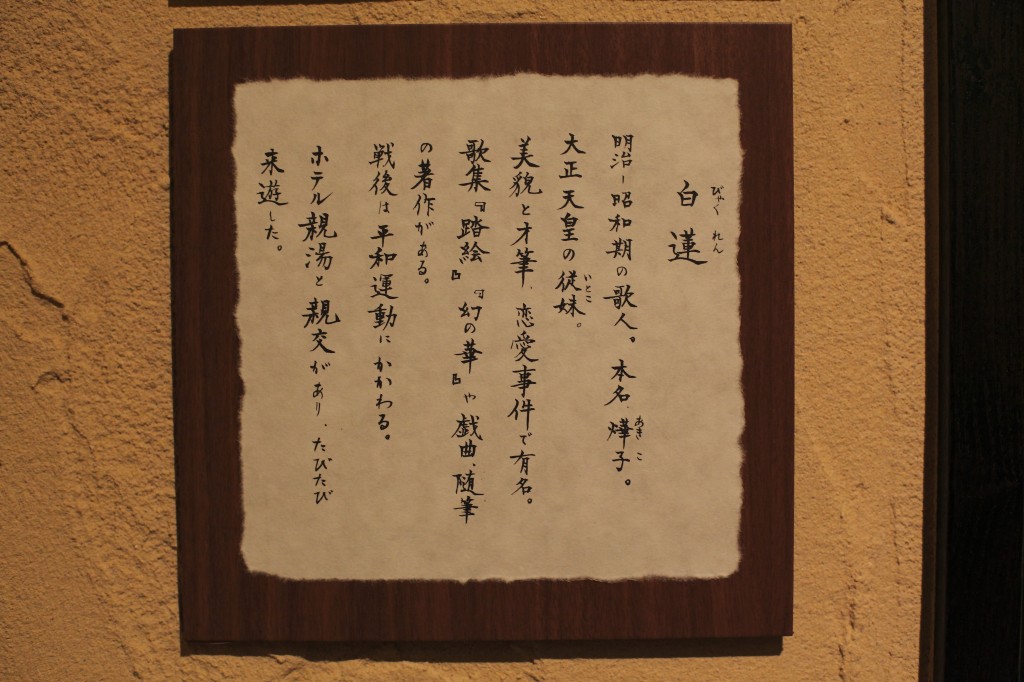 白蓮
びゃくれん
明治ー昭和期の歌人。本名、燁子。
あきこ
大正天皇の従妹。
いとこ
美貌と才筆、恋愛事件で有名。
歌集『踏絵』『幻の華』や戯曲、随筆
の著作がある。
戦後は平和運動にかかわる。
ホテル親湯と親交があり、たびたび
来遊した。